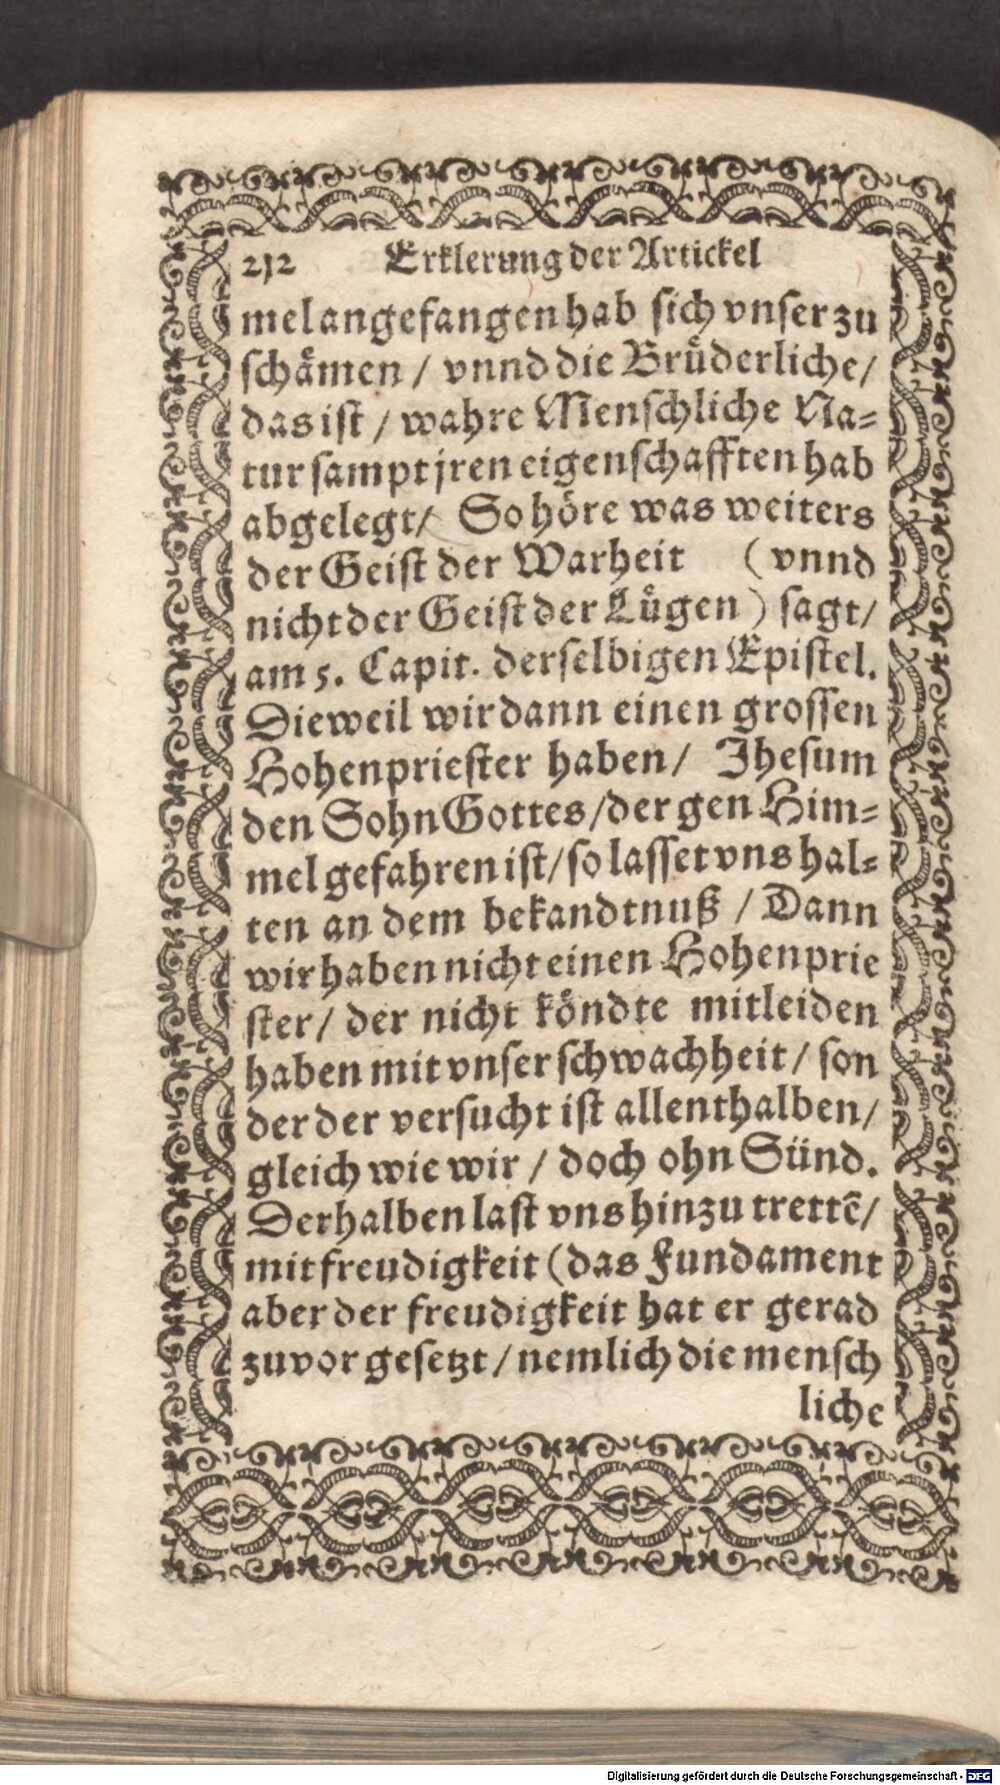 212 Erklerung der Artickel
mel angefangen hab sich vnser zu
schämen / vnnd die Brüderliche /
das ist / wahre Menschliche Na-
tur sampt jren eigenschafften hab
abgelegt / So höre was weiters
der Geist der Warheit (vnnd
nicht der Geist der Lügen) sagt /
am 5. Capit. derselbigen Epistel.
Dieweil wir dann einen grossen
Hohenpriester haben / Jhesum
den Sohn Gottes / der gen Him-
mel gefahren ist / so lasset vns hal-
ten an dem bekandtnuß / Dann
wir haben nicht einen Hohenprie
ster / der nicht köndte mitleiden
haben mit vnser schwachheit / son
der der versucht ist allenthalben /
gleich wie wir / doch ohn Sünd.
Derhalben last vns hinzu trettẽ /
mit freudigkeit (das Fundament
aber der freudigkeit hat er gerad
zuvor gesetzt / nemlich die mensch
liche
Digitalisierung gefördert durch die Deutsche Forschungsgemeinschaft - DFG